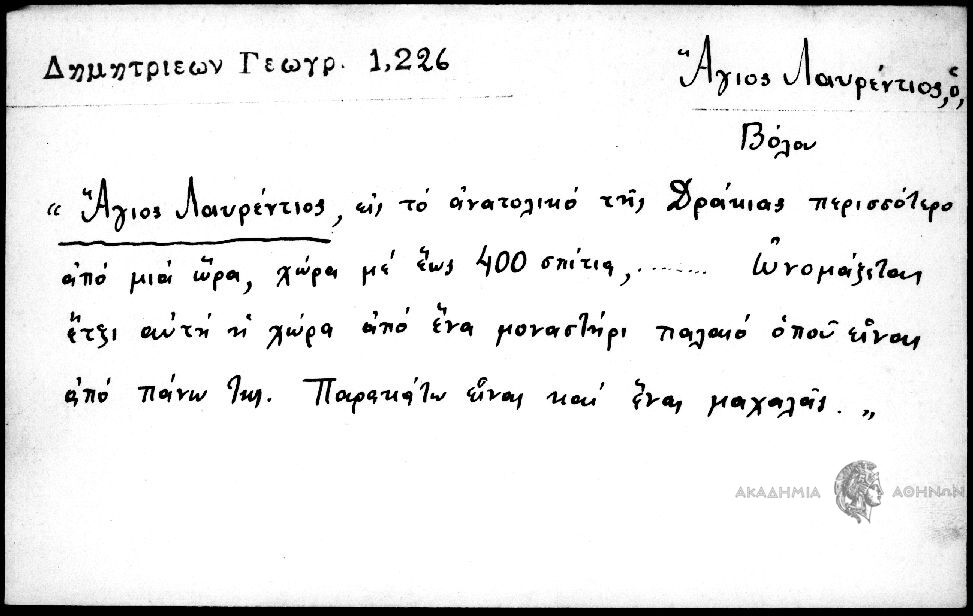 Δημητριεων Γεωγρ. 1,226
Ἅγιος Λαυρέντιος, ὁ,
Βόλου
“ Ἅγιος Λαυρέντιος, εἰς τό ἀνατολικό τῆς Δράκιας περισσότερο
ἀπό μιά ὥρα, χώρα μέ ἕως 400 σπίτια, ........ Ὠνομάζεται
ἔτζι αὐτή ἡ χώρα ἀπό ἕνα μοναστήρι παλαιό ὁποῦ εἶναι
ἀπό πάνω της. Παρακάτω εἶναι καί ἕνας μαχαλᾶς. „
ΑΚΑΔΗΜΙΑ ΑΘΗΝΩΝ